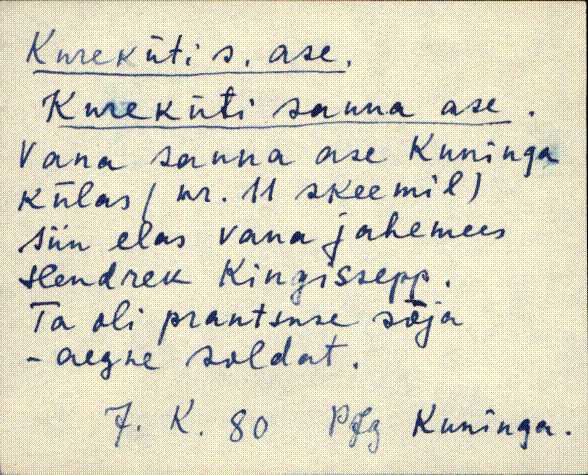 Kureküti s. ase.
Kureküti sauna ase.
Vana sauna ase Kuninga
külas (nr. 11 skeemil)
siin elas vana jahemees
Hendrek Kingissepp.
Ta oli prantsuse sõja
-aegne soldat.
7. K. 80 Kuninga.